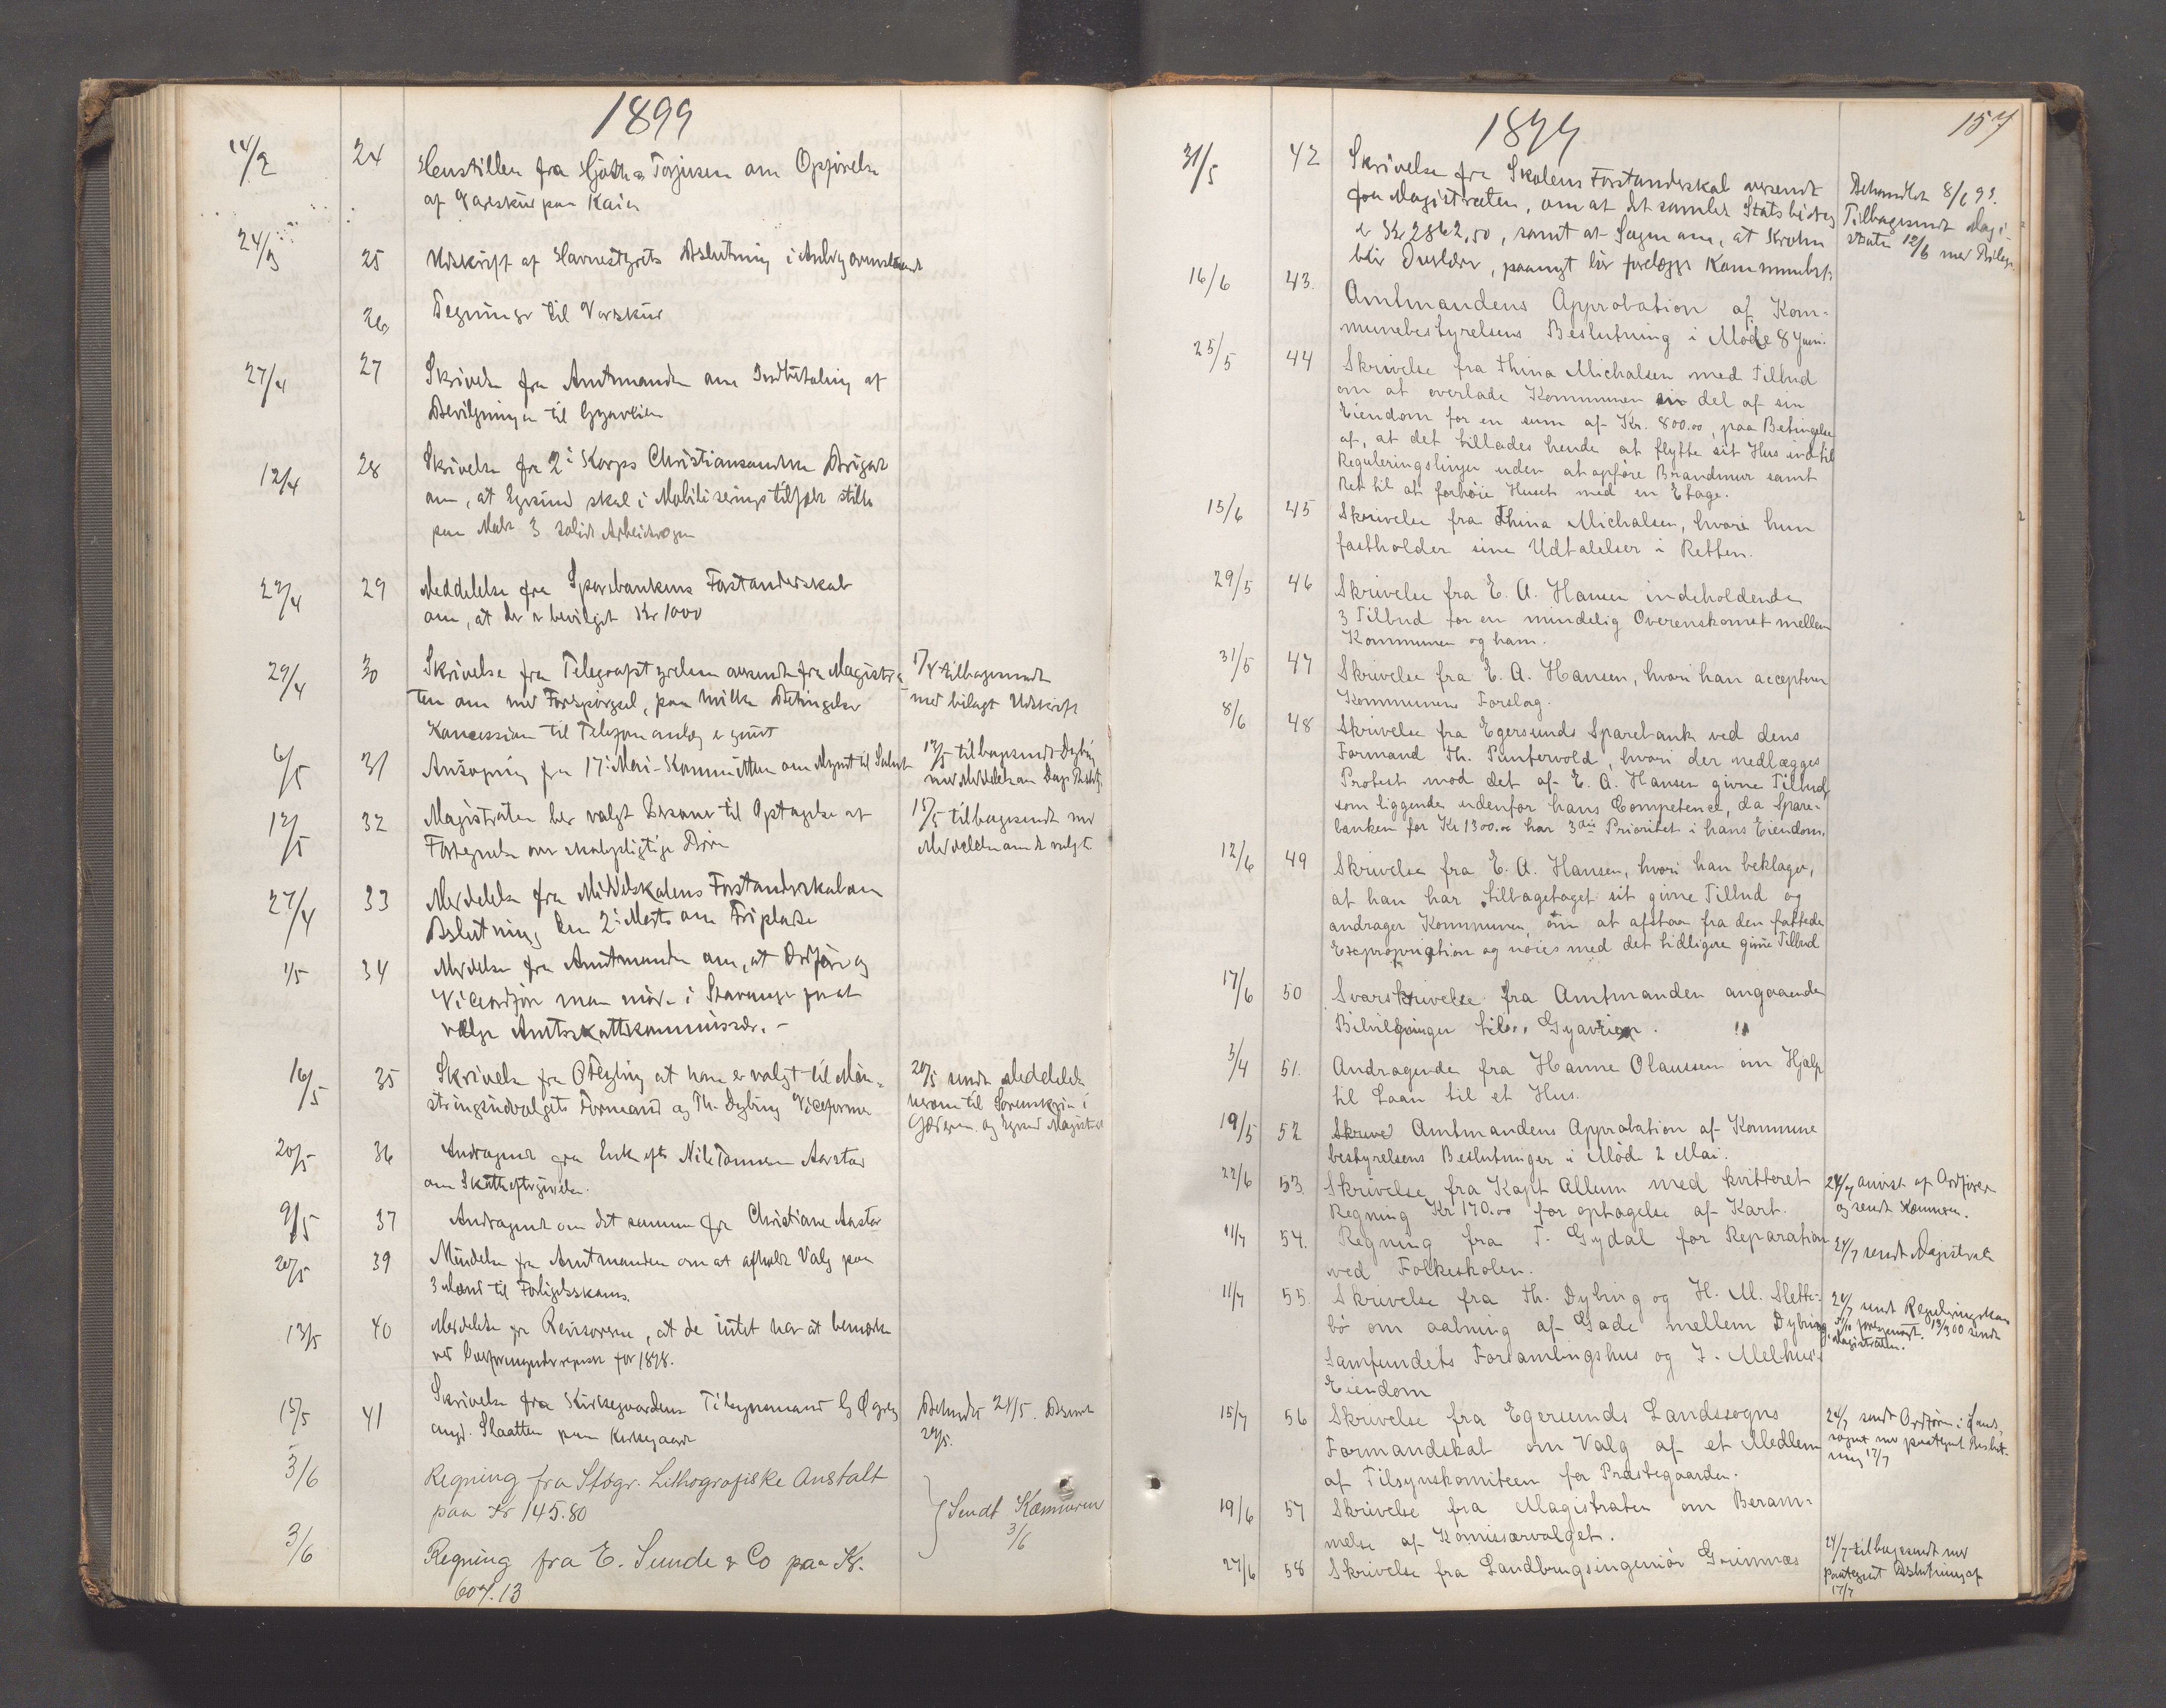 1899
14/2 24 Henstillen fra Hjøth & Torjusen om Opførelse
af Vareskur paa Kaien
24/3 25 Udskrift af Havnestyrets Beslutning i
26 Tegninger til Varskur
27/4 27 Skrivelse fra Amtmanden om Indbetaling af
Bevilgningen til Gyaveien
12/4 28 Skrivelse fra 2: Korps Christiansandske Brigade
om, at Egersund skal i Mobiliseringstilfælde stille
paa 3 solide Arbeidsvogne
22/4 29 Meddelelse fra Sparebankens Forstanderskab
om, at der er bevilget Kr 1000
29/4 30 Skrivelse fra Telegrafstyrelsen oversendt fra Magistra
ten om med Forespørgsel, paa hvilke Betingelser
Koncession til Telefonanlæg er givet
tilbagesendt
med bilagt Udskrift
6/5 31 Ansøgning fra 17: Mai-Kommitteen om til Salut
12/5 tilbagesendt Dybing
med Meddelelse om
12/5 32 Magistraten har valgt til Optagelse af
Fortegnelse over skolepligtige Børn
15/5 tilbagesendt med
Meddelelse om de valgte
27/4 33 Meddelelse fra Middelskolens Forstanderskab om
Beslutning den 2: Marts om Fripladse
1/5 34 Meddelelse fra Amtmanden om, at Ordfører og
Viceordfører maa møde i Stavanger for at
vælge Amtsskattekommissær. –
16/5 35 Skrivelse fra at han er valgt til Møn-
stringsudvalgets Formand og Th. Dybing Viceformand
20/5 sendt Meddelelse
herom til Sorenskriver i
Jæderen og Egersund Magistrat
20/5 36 Andragende fra Enke efter Nils Tønnesen Aarstad
om Skatteeftergivelse.
9/5 37 Andragende om det samme fra Christiane Aarstad
20/5 39 Meddelelse fra Amtmanden om at afholde Valg paa
3 Mænd til Forligelseskomm.
13/5 40 Meddelelse fra Revisorerne, at de intet har at bemærke
ved for 1898.
15/5 41 Skrivelse fra Kirkegaardens Tilsynsmand
angd. Slaatten paa Kirkegaarden
Behandlet 24/5.
3/6 Regning fra Stvgr. Lithografiske Anstalt
paa Kr 145.80
3/6 Regning fra E. Sunde & Co paa Kr.
607.13
Sendt Kæmneren
3/6
1899 157
31/5 42 Skrivelse fra Skolens Forstanderskab oversendt
fra Magistraten, om at det samlede Statsbidrag
er Kr 2862,50, samt at Sagen om, at Krohn
blir Overlærer, paanyt blir forelagt Kommunebest.
Behandlet 8/6 99.
Tilbagesendt Magi-
straten 12/6 med Bilag.
16/6 43. Amtmandens Approbation af Kom-
munebestyrelsens Beslutning i Møde 8 Juni.
25/5 44 Skrivelse fra Thina Michalsen med Tilbud
om at overlade Kommunen en del af sin
Eiendom for en sum af Kr. 800.00, paa Betingelse
af, at det tillades hende at flytte sit Hus indtil
Reguleringslinjen uden at opføre Brandmur samt
Ret til at forhøie Huset med en Etage.
15/6 45 Skrivelse fra Thina Michalsen, hvori hun
fastholder sine Udtalelser i Retten.
29/5 46 Skrivelse fra E. A. Hansen indeholdende
3 Tilbud for en mindelig Overenskomst mellem
Kommunen og ham.
31/5 47 Skrivelse fra E. A. Hansen, hvori han accepterer
Kommunens Forslag.
8/6 48 Skrivelse fra Egersunds Sparebank ved dens
Formand Th. Puntervold, hvori der nedlægges
Protest mod det af E. A. Hansen givne Tilbud,
som liggende udenfor hans Competence, da Spare-
banken for Kr 1300.00 har 3die Prioritet i hans Eiendom.
12/6 49 Skrivelse fra E. A. Hansen, hvori han beklager,
at han har tilbagetaget sit givne Tilbud og
andrager Kommunen, om at afstaa fra den fattede
Expropriation og nøies med det tidligere givne Tilbud
17/6 50 Svarskrivelse fra Amtmanden angaaende
Bevilgninger til Gyaveien.
3/4 51. Andragende fra Hanne Olaussen om Hjælp
til Laan til et Hus.
19/5 52 Skrive Amtmandens Approbation af Kommune
bestyrelsens Beslutninger i Møde 2 Mai.
22/6 53. Skrivelse fra Kapt Allum med kvitteret
Regning Kr 170.00 for optagelse af Kart.
24/7 anvist af Ordføreren
og sendt Kæmneren.
11/7 54. Regning fra T. Gydal for Reparation
ved Folkeskolen.
24/7 sendt Magistraten
11/7 55. Skrivelse fra Th. Dybing og H. M. Slette-
bø om aabning af Gade mellem Dybing,
Samfundets Forsamlingshus og J. Melhus's
Eiendom
24/7 sendt Reguleringskom
sendt
Magistraten.
15/7 56 Skrivelse fra Egersunds Landssogns
Formandskab om Valg af et Medlem
af Tilsynskomiteen for Præstegaarden.
24/7 sendt Ordføreren i Lands
sognet med paategnet Beslut-
ning 17/7
19/6 57 Skrivelse fra Magistraten om Beram-
melse af Komissærvalget.
27/6 58 Skrivelse fra Landbrugsingeniør Grimnæs
24/7 tilbagesendt med
paategnet Beslutning af
17/7